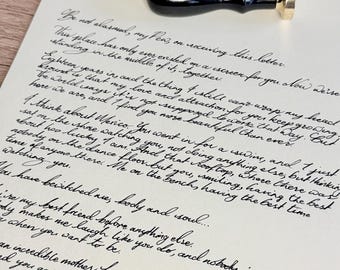 Be not alarmed, my Dear, on receiving this letter
This play has only ever ended on a reason for you &
standing in the middle of it, together.
Eighteen years in and the thing I still can't wrap my head
around is that my love and attraction you keep growing
The world says it's not supposed to work that way. But
here we are and I find you more beautiful than ever.
I think about Mexico. You went in for a swim, and I just
sat on the shore watching you, not doing anything else, but thinking
how lucky I am. And that rooftop, where there was
nobody on the dance floor but us, smiling, having the best
time of anyone there. Me on the bench, having the best time
watching you.
You have bewitched me, body and soul...
You're my best friend before anything else.
body makes me laugh like you do, and nobody
when you want to be.
an incredible mother.